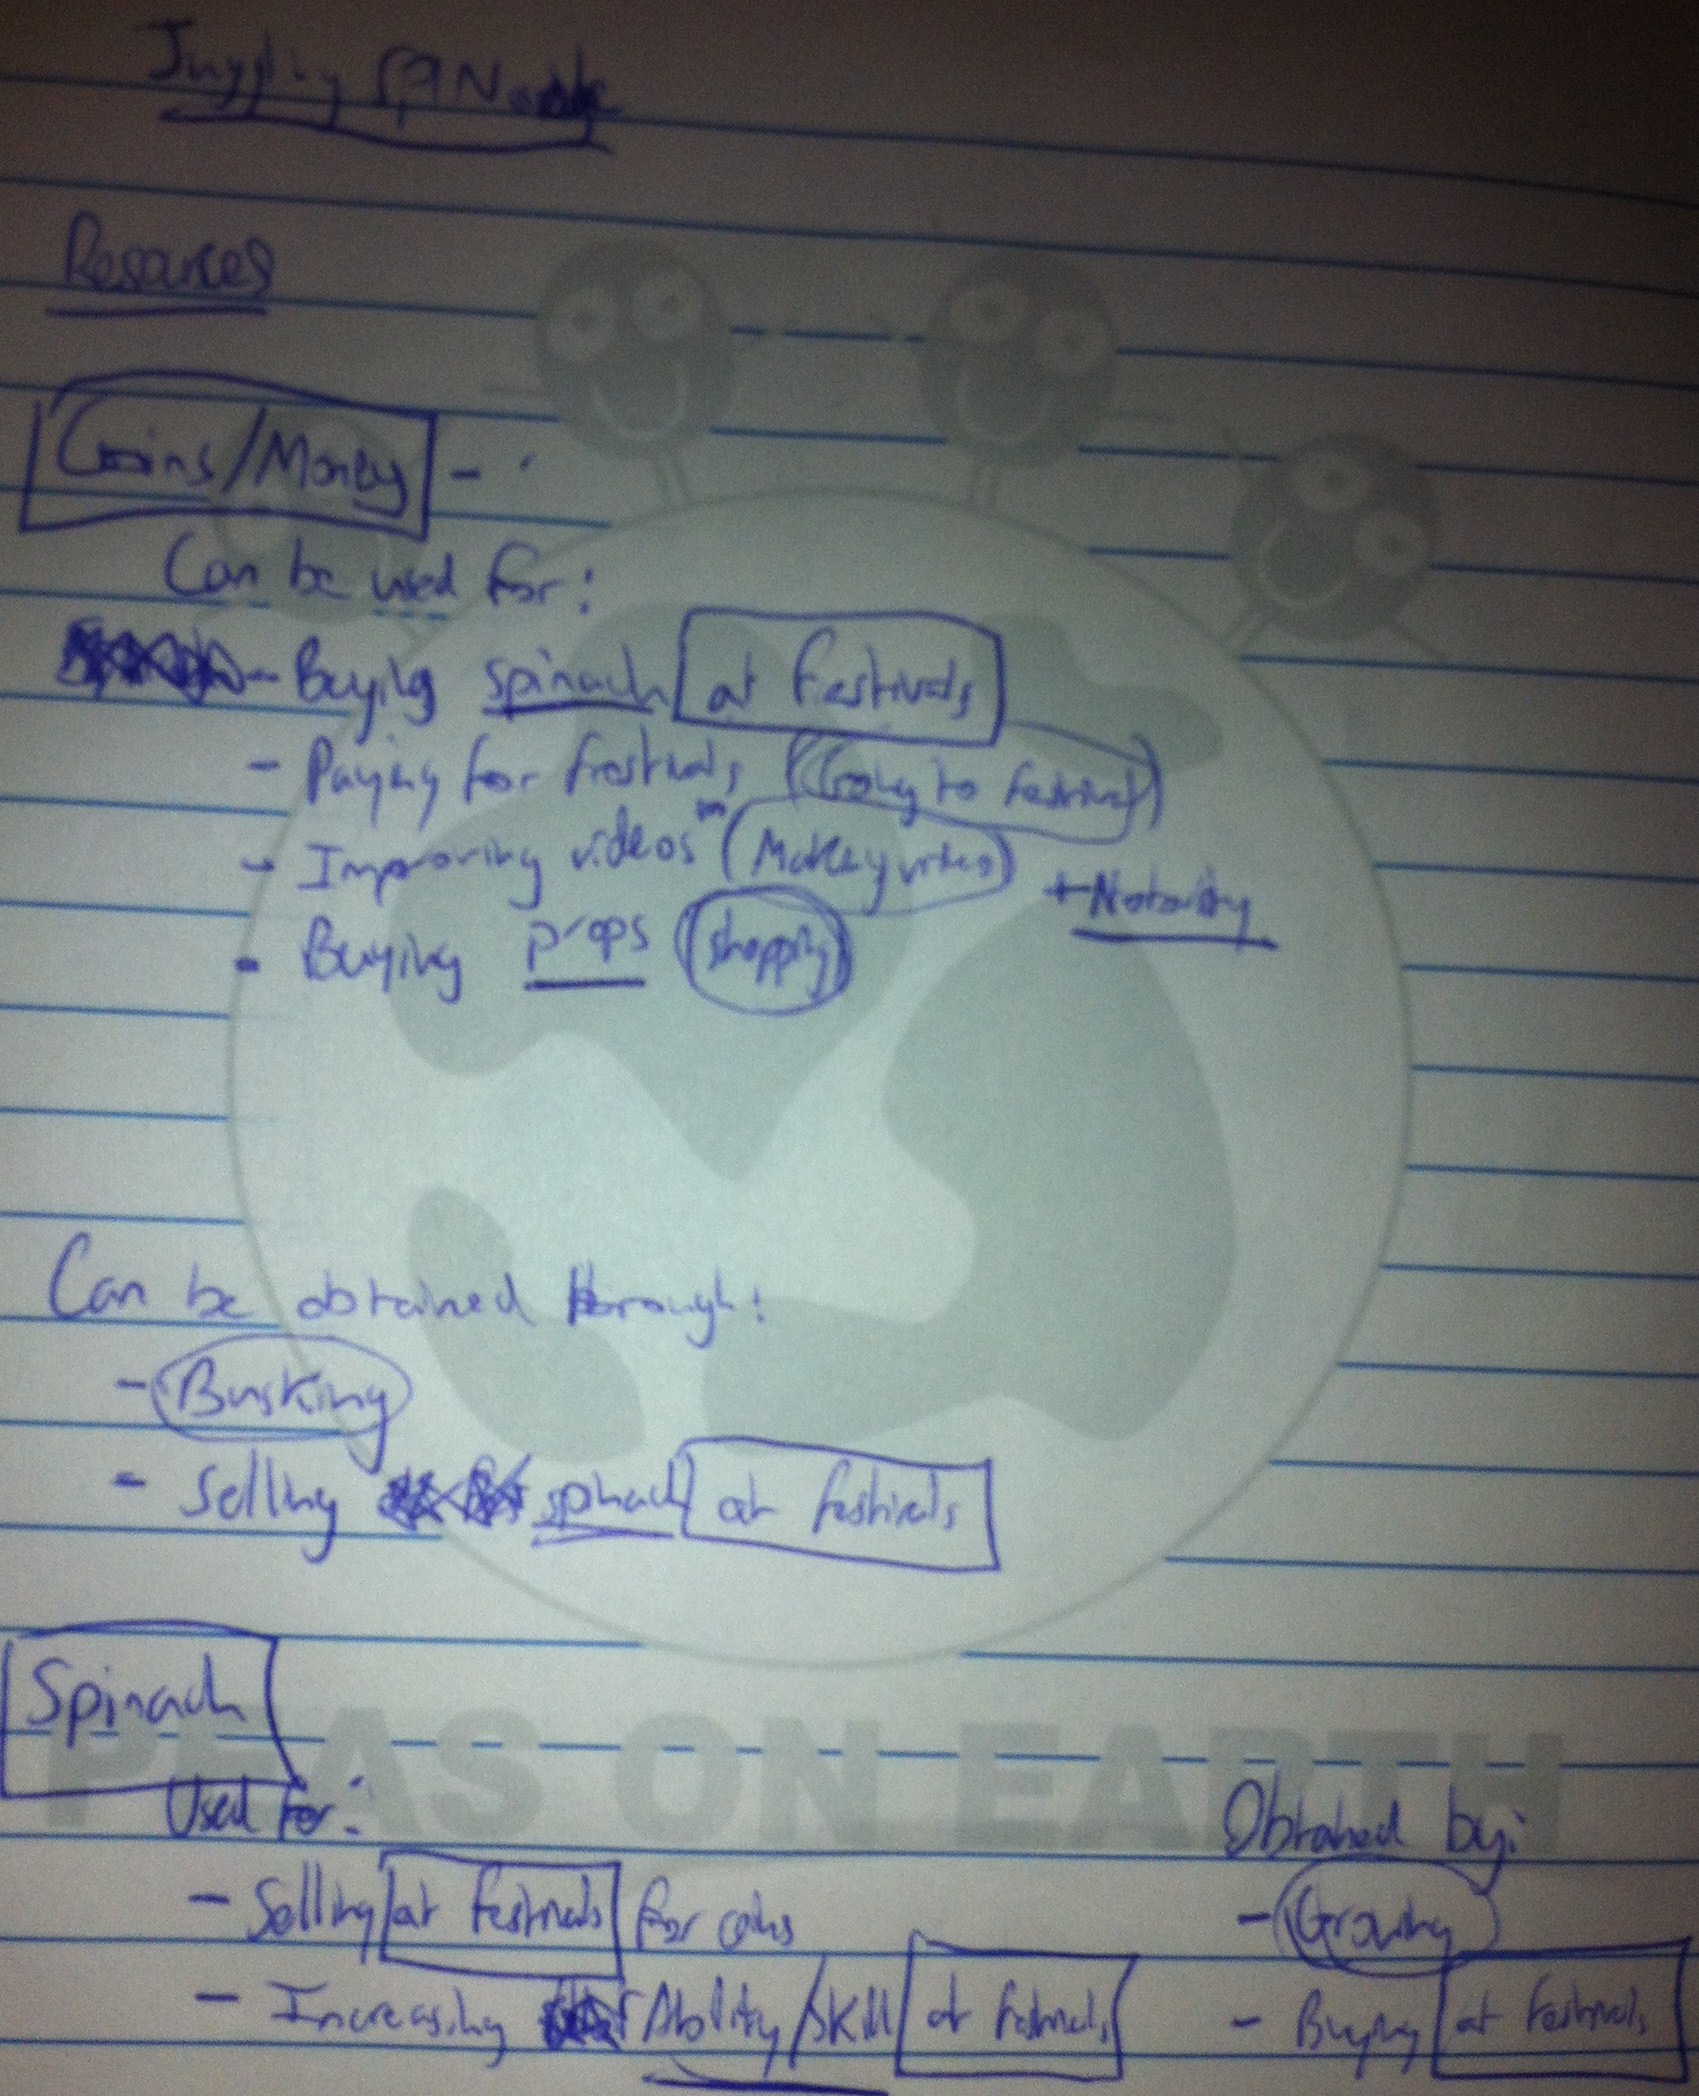 Juggling
Resources
Coins/Money -
Can be used for:
- Buying spinach at festivals
- Paying for festivals (Going to festival)
- Improving videos (Making video) + Notority
- Buying props (shopping)
Can be obtained through:
- Busking
- Selling spinach at festivals
Spinach
PEAS ON EARTH
Used for:
- Selling at festivals for coins
- Increasing Ability/skill at festivals
Obtained by:
- Growing
- Buying at festivals